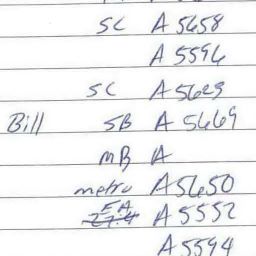 SC A 5658
A 5596
SC A 5623
Bill SB A 5669
MB A
metro A 5650
EA A 5552
A 5594